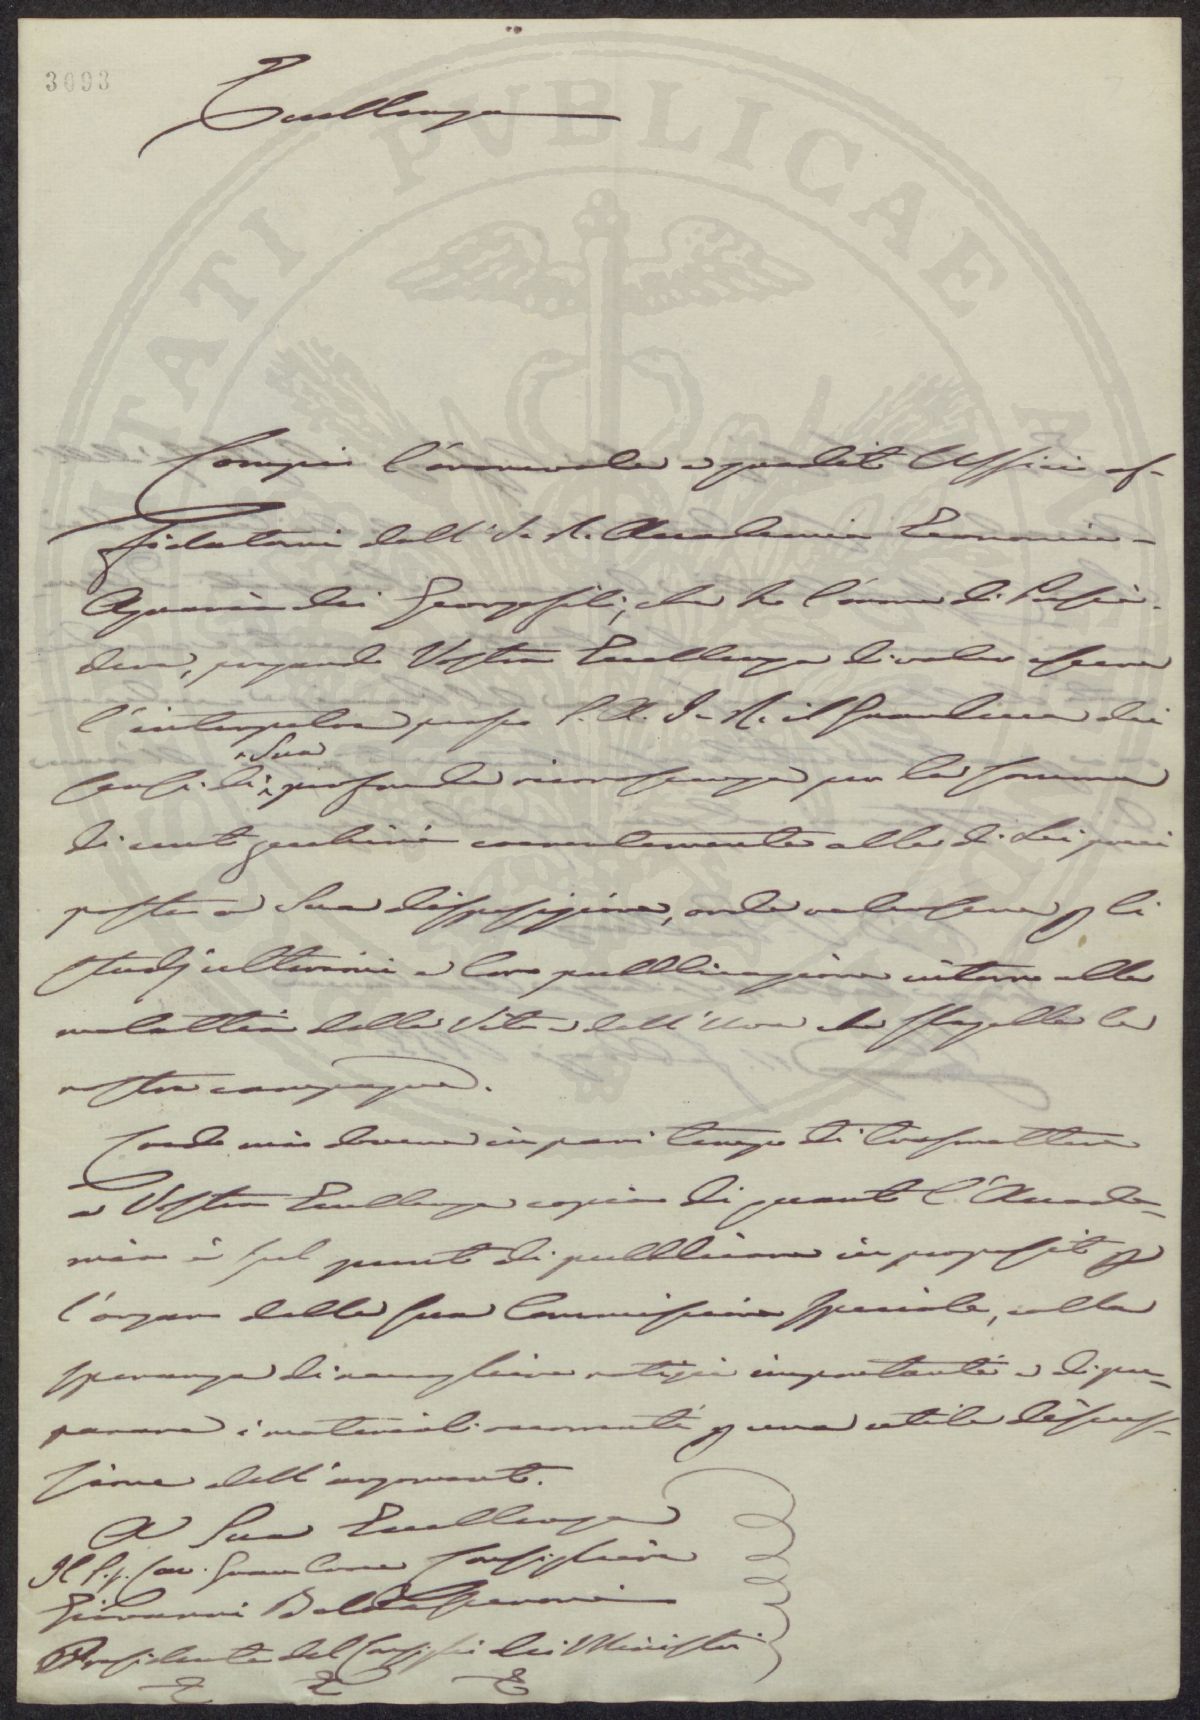 3093
Eccellenza
Compio l'onorevole e gradito Ufficio af-
fidatomi dall'I. e R. Accademia Economico-
Agraria dei Georgofili, che ho l'onore di Presie-
dere, pregando Vostra Eccellenza di voler essere
l'interpetre presso S. A. I. e R. il Granduca dei
sensi di Sua profonda riconoscenza per la somma
di cento zecchini coerentemente alle di Lei preci
posta a Sua disposizione, onde valersene p gli
studj ulteriori e loro pubblicazione intorno alla
malattia della Vite e dell'Uva che flagella le
nostre campagne.
Credo mio dovere in pari tempo di trasmettere
a Vostra Eccellenza copia di quanto l'Accade-
mia è sul punto di pubblicare in proposito p
l'organo della sua Commissione speciale, colla
speranza di raccogliere notizie importanti e di pre-
parare i materiali occorrenti p una utile discus-
sione dell'argomento.
A Sua Eccellenza
Il Sig. Cav. Gran Croce Consigliere
Giovanni Baldasseroni
Presidente del Consiglio dei Ministri
PUBLICAE